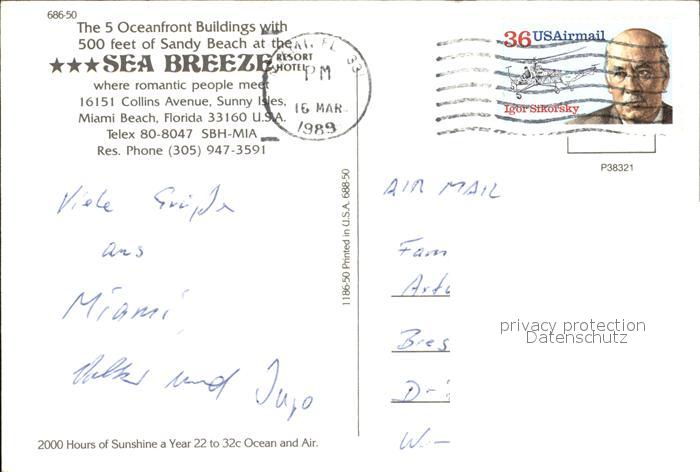 686-50
The 5 Oceanfront Buildings with
500 feet of Sandy Beach at the
★★★ SEA BREEZE RESORT HOTEL
where romantic people meet
16151 Collins Avenue, Sunny Isles,
Miami Beach, Florida 33160 U.S.A.
Telex 80-8047 SBH-MIA
Res. Phone (305) 947-3591
PM
16 MAR
1989
36 USAirmail
Igor Sikorsky
P38321
Viele Grüße
aus
Miami,
Volker und Ingo
2000 Hours of Sunshine a Year 22 to 32c Ocean and Air.
1186-50 Printed in U.S.A. 688-50
AIR MAIL
Fam
Artu
Bres
D-
W-
privacy protection
Datenschutz